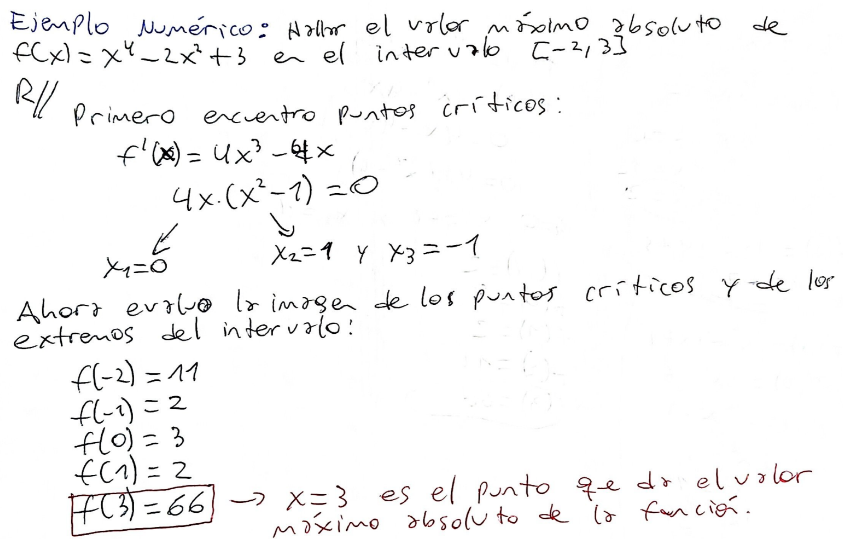 Ejemplo Numérico: Hallar el valor máximo absoluto de
f(x) = x⁴ - 2x² + 3 en el intervalo [-2, 3]
R//
Primero encuentro puntos críticos:
f'(x) = 4x³ - 4x
4x·(x² - 1) = 0
x₁=0 x₂=1 y x₃=-1
Ahora evaluo la imagen de los puntos críticos y de los
extremos del intervalo:
f(-2) = 11
f(-1) = 2
f(0) = 3
f(1) = 2
f(3) = 66 → x=3 es el punto que da el valor
máximo absoluto de la función.